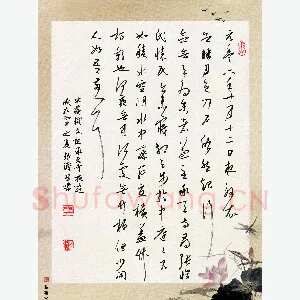 元丰六年十月十二日夜解衣
欲睡月色入户欣然起行
念无与为乐者遂至承天寺寻张怀
民怀民亦未寝相与步于中庭庭下
如积水空明水中藻荇交横盖竹
柏影也何夜无月何处无竹柏但少闲
人如吾两人耳